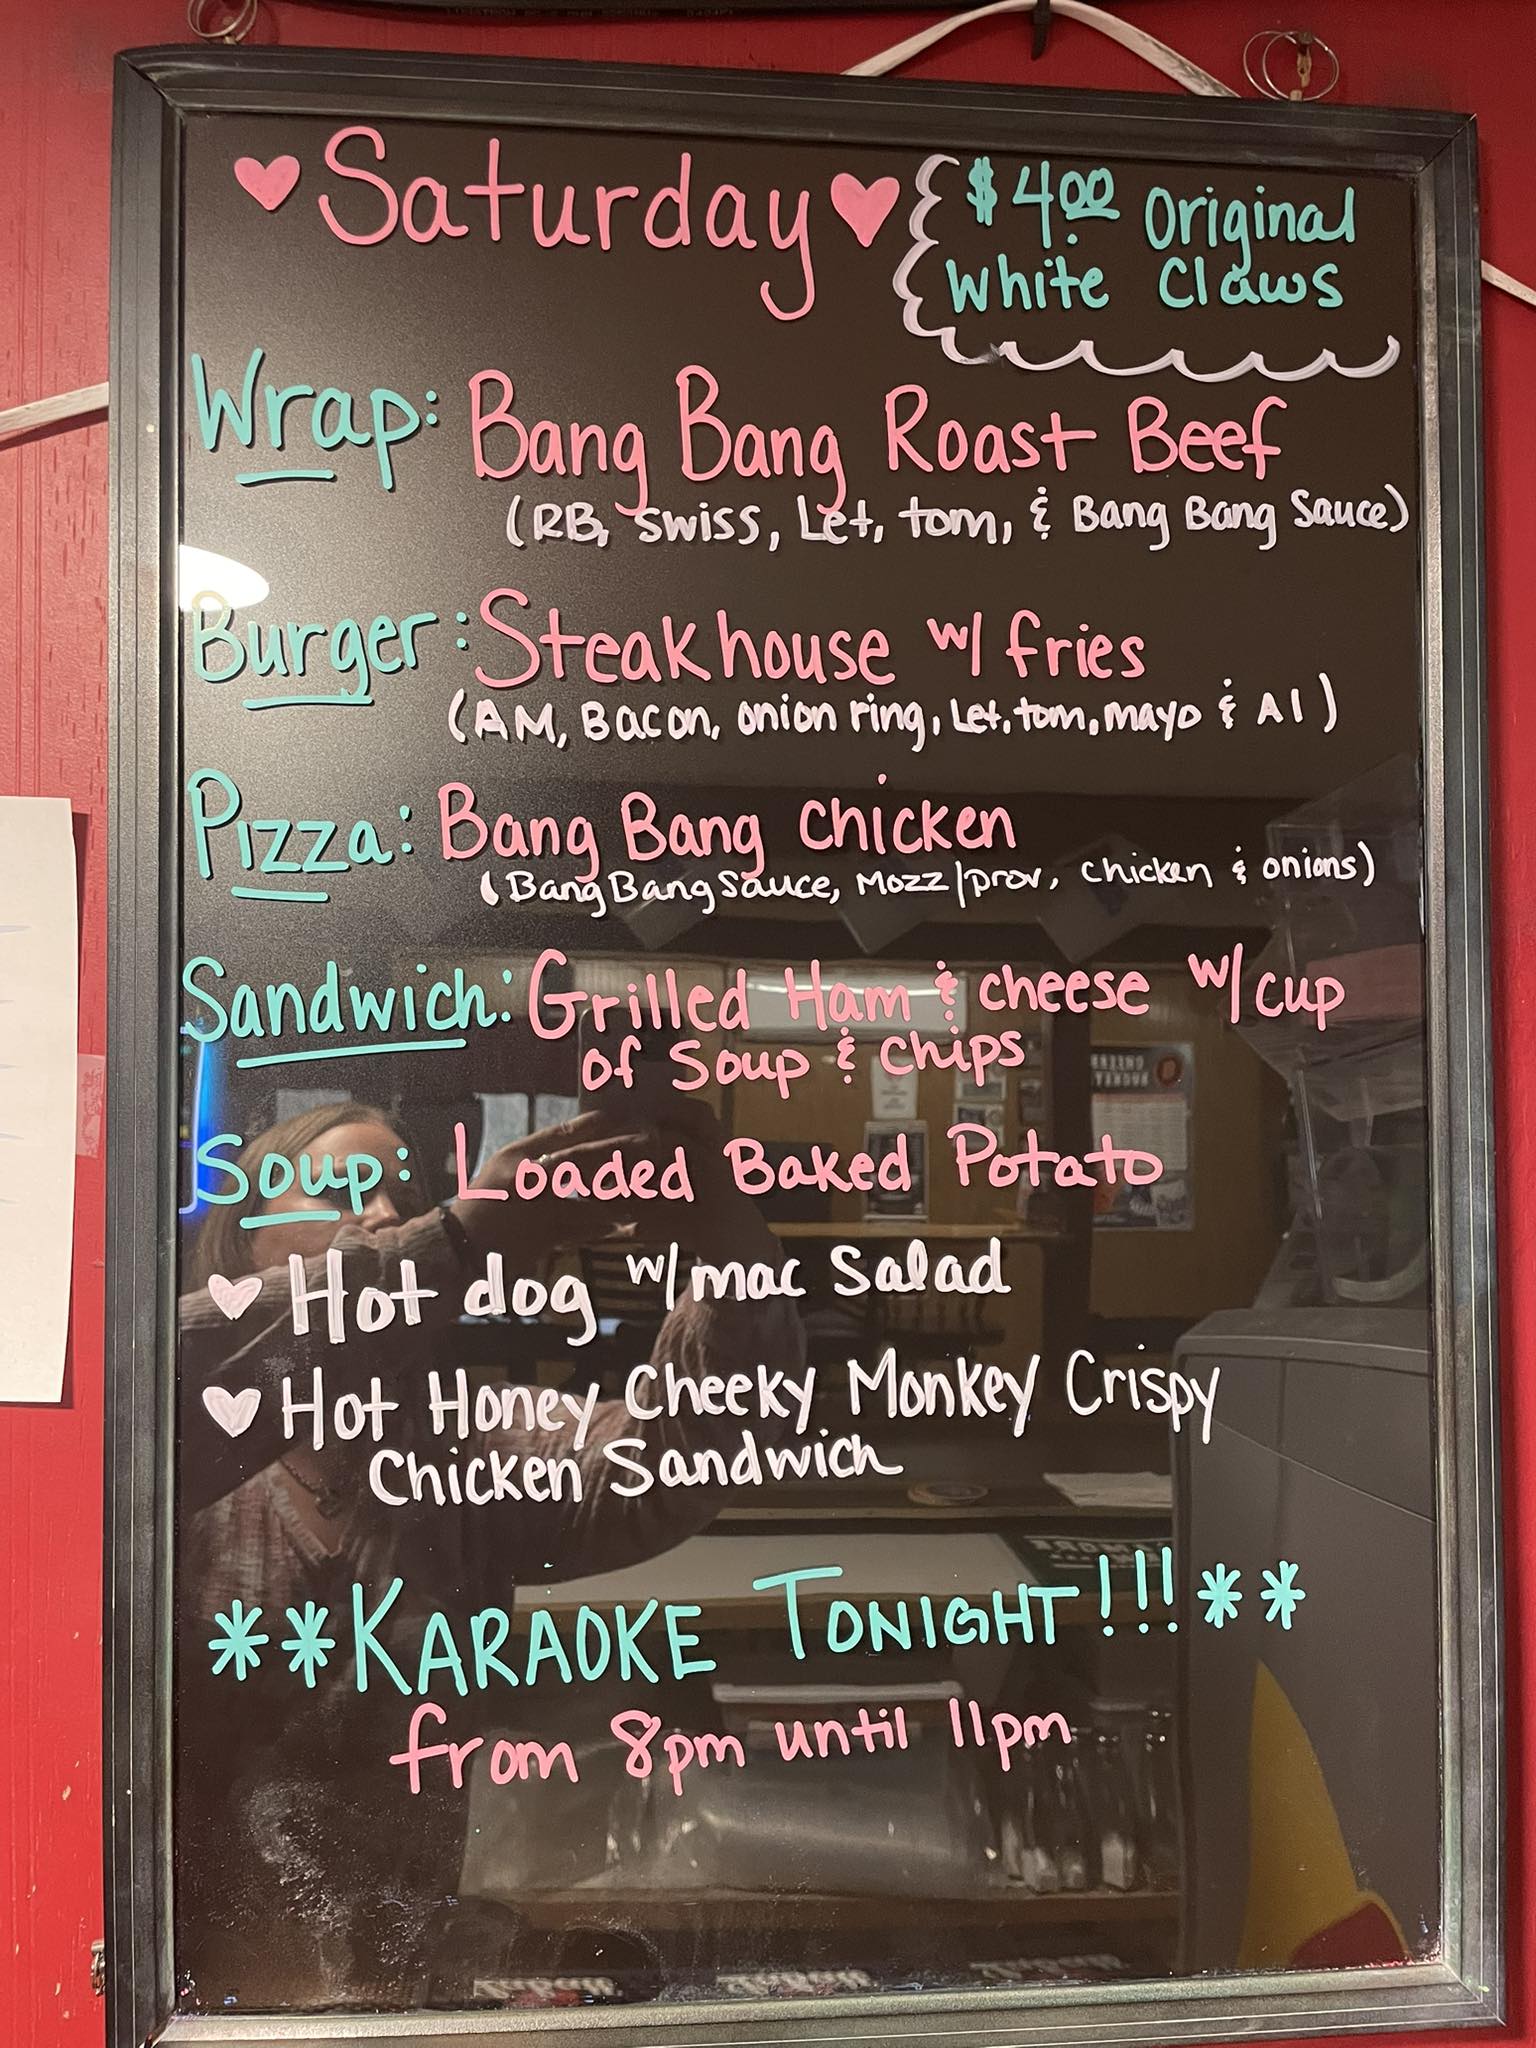 ♥ Saturday ♥
$4.00 Original
White Claws
Wrap: Bang Bang Roast Beef
(RB, Swiss, Let, tom, & Bang Bang Sauce)
Burger: Steakhouse w/ fries
(AM, Bacon, onion ring, Let, tom, mayo & A1)
Pizza: Bang Bang Chicken
(Bang Bang Sauce, Mozz/prov, chicken & onions)
Sandwich: Grilled Ham & cheese w/ cup
of Soup & Chips
Soup: Loaded Baked Potato
♥ Hot dog w/ mac Salad
♥ Hot Honey Cheeky Monkey Crispy
Chicken Sandwich
**KARAOKE TONIGHT!!!**
from 8pm until 11pm